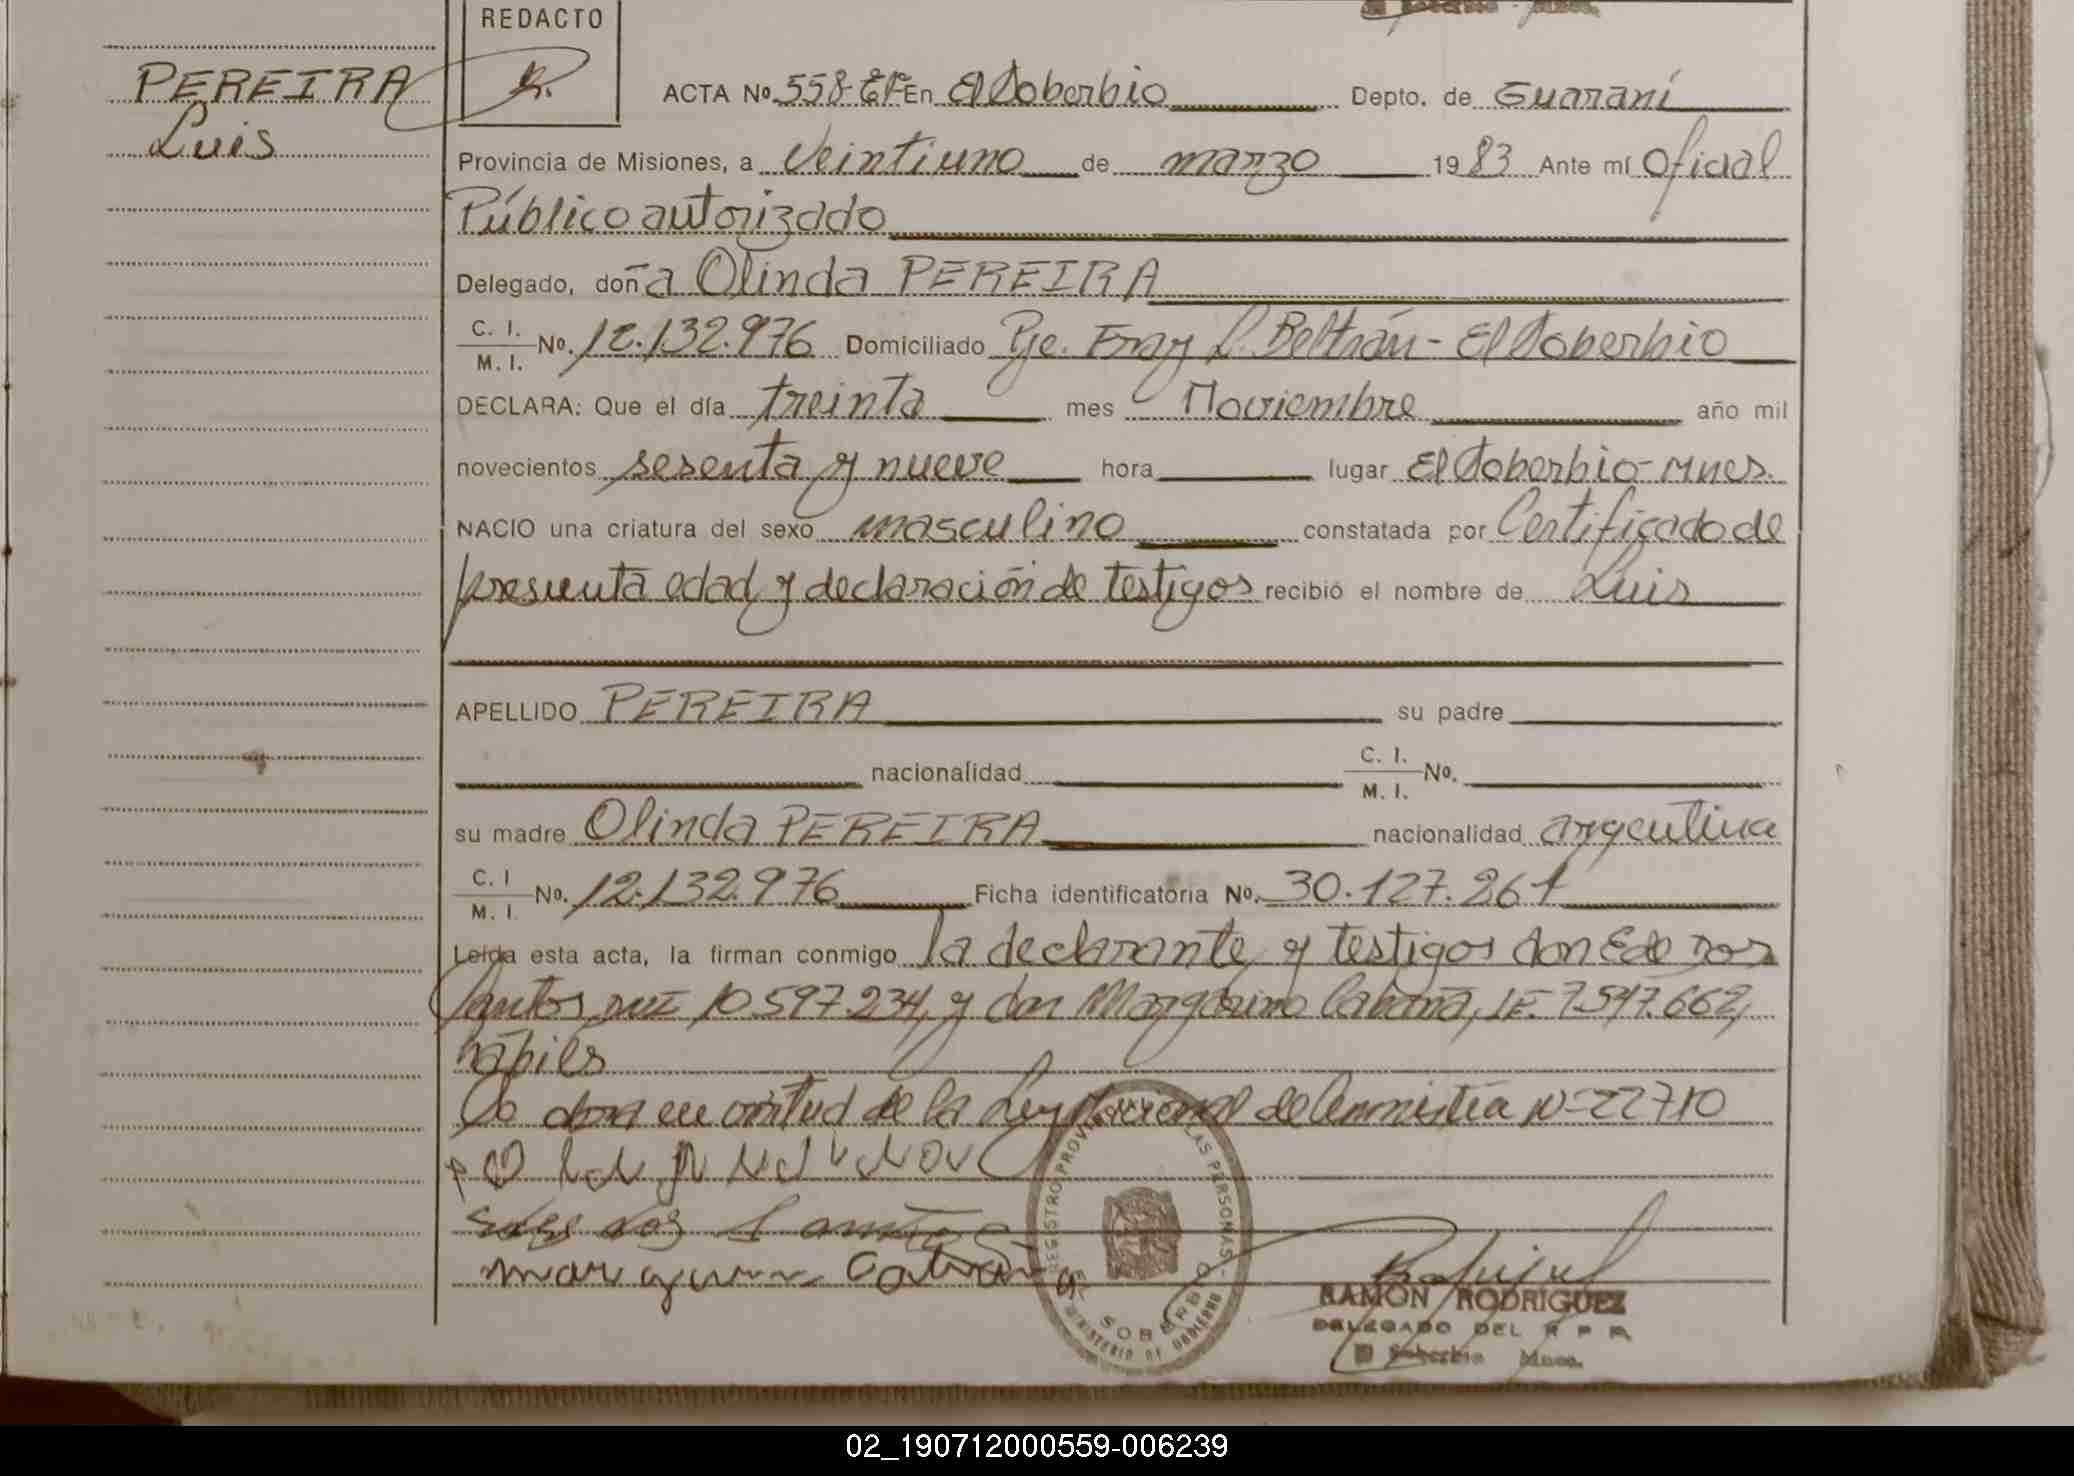 REDACTO
PEREIRA
Luis
ACTA Nº 558- En El Soberbio Depto. de Guaraní
Provincia de Misiones, a Veintiuno de marzo 1983 Ante mí Oficial
Público autorizado
Delegado, doña Olinda PEREIRA
C. I.
M. I. Nº. 12.132.976 Domiciliado Pje. Fray L. Beltrán - El Soberbio
DECLARA: Que el día treinta mes Noviembre año mil
novecientos sesenta y nueve hora lugar El Soberbio - Mnes.
NACIO una criatura del sexo masculino constatada por Certificado de
presunta edad y declaración de testigos recibió el nombre de Luis
APELLIDO PEREIRA su padre
nacionalidad C. I.
M. I. Nº.
su madre Olinda PEREIRA nacionalidad argentina
C. I
M. I. Nº. 12.132.976 Ficha identificatoria Nº. 30.127.261
Leida esta acta, la firman conmigo la declarante y testigos don Ede Dos
Santos DNI 10.597.234, y don Cabaña, LE. 7.547.662,
hábiles
de la Ley Nacional de Amnistía Nº 22710
dos Santos
REGISTRO PROVINCIAL DE LAS PERSONAS
EL SOBERBIO
MINISTERIO DE GOBIERNO
RAMON RODRIGUEZ
DELEGADO DEL R P P
El Soberbio Mnes.
02_190712000559-006239